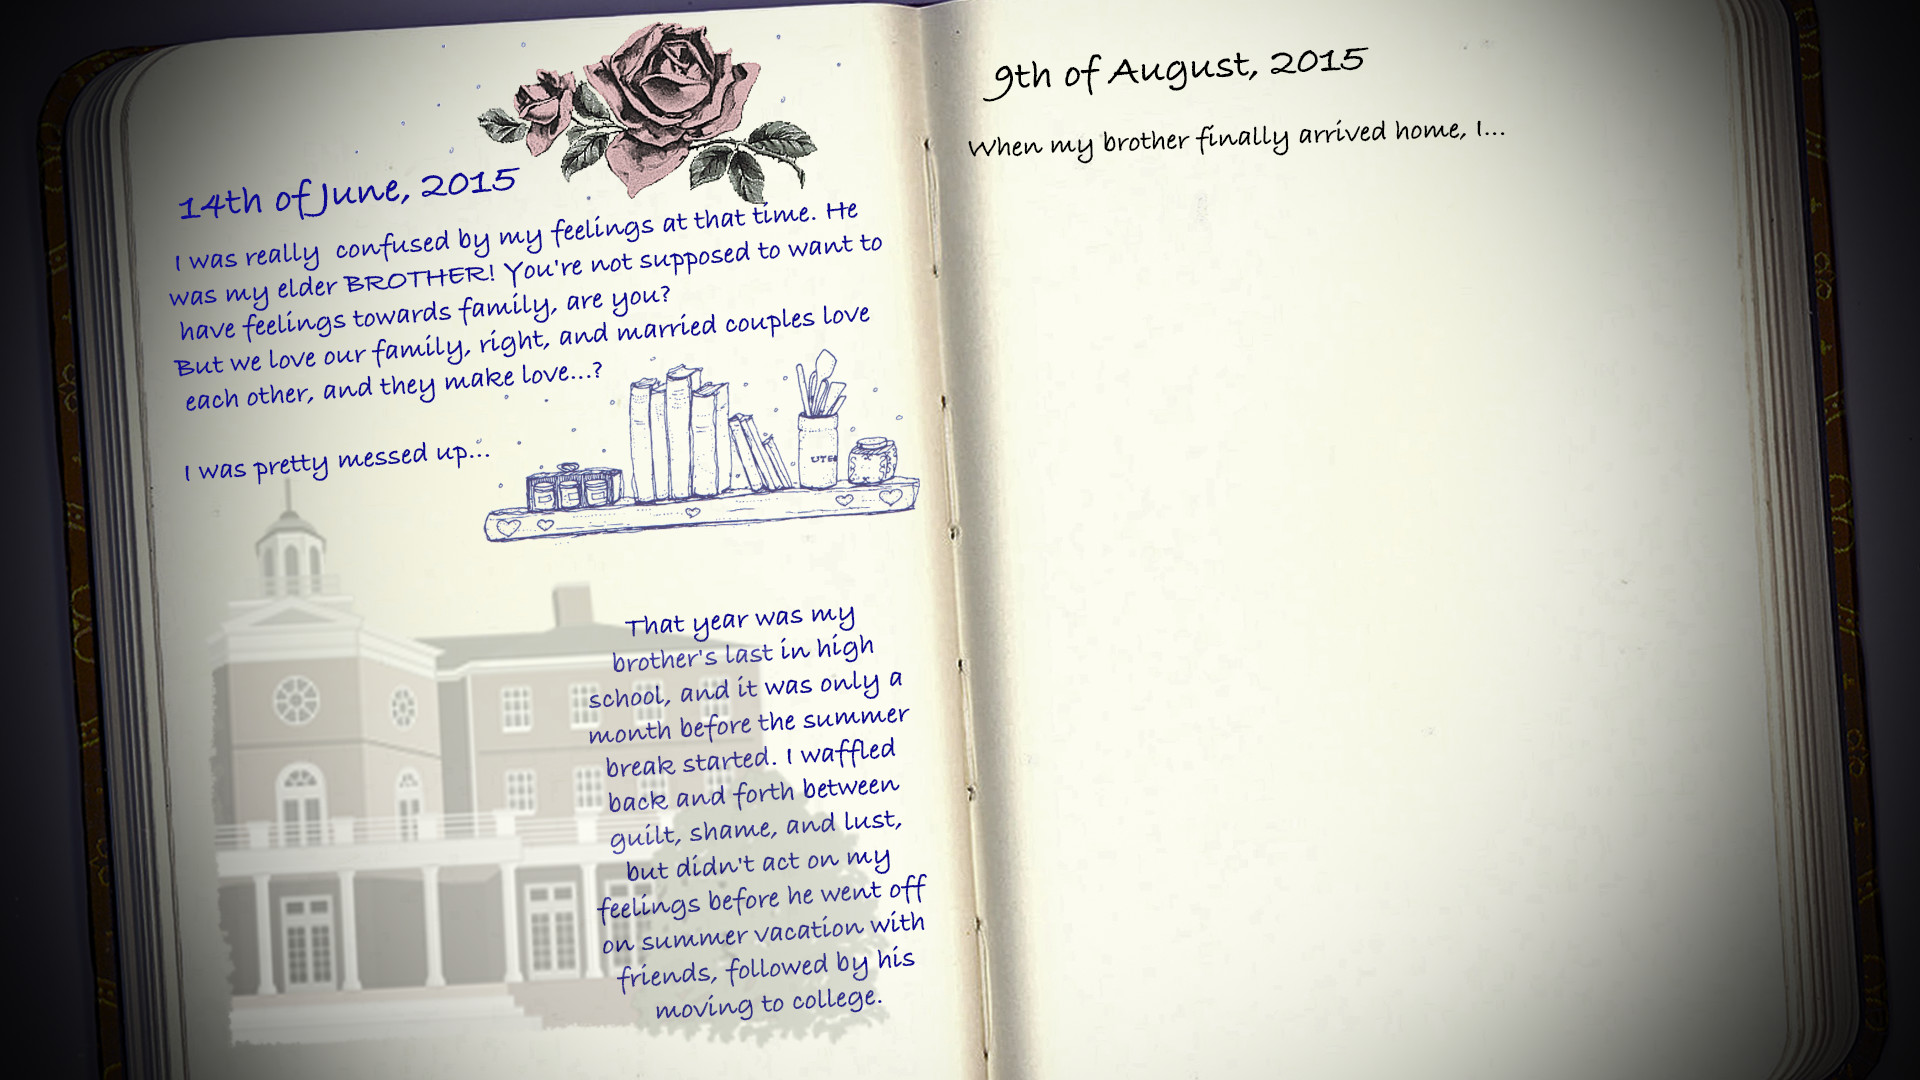 14th of June, 2015
I was really confused by my feelings at that time. He
was my elder BROTHER! You're not supposed to want to
have feelings towards family, are you?
But we love our family, right, and married couples love
each other, and they make love...?
I was pretty messed up...
UTE
That year was my
brother's last in high
school, and it was only a
month before the summer
break started. I waffled
back and forth between
guilt, shame, and lust,
but didn't act on my
feelings before he went off
on summer vacation with
friends, followed by his
moving to college.
9th of August, 2015
When my brother finally arrived home, I...